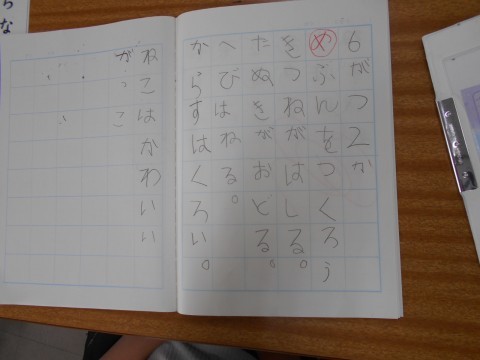 6がつ2か
めぶんをつくろう
きつねがはしる。
たぬきがおどる。
へびはねる。
からすはくろい。
ねこはかわいい
が、こ
らな